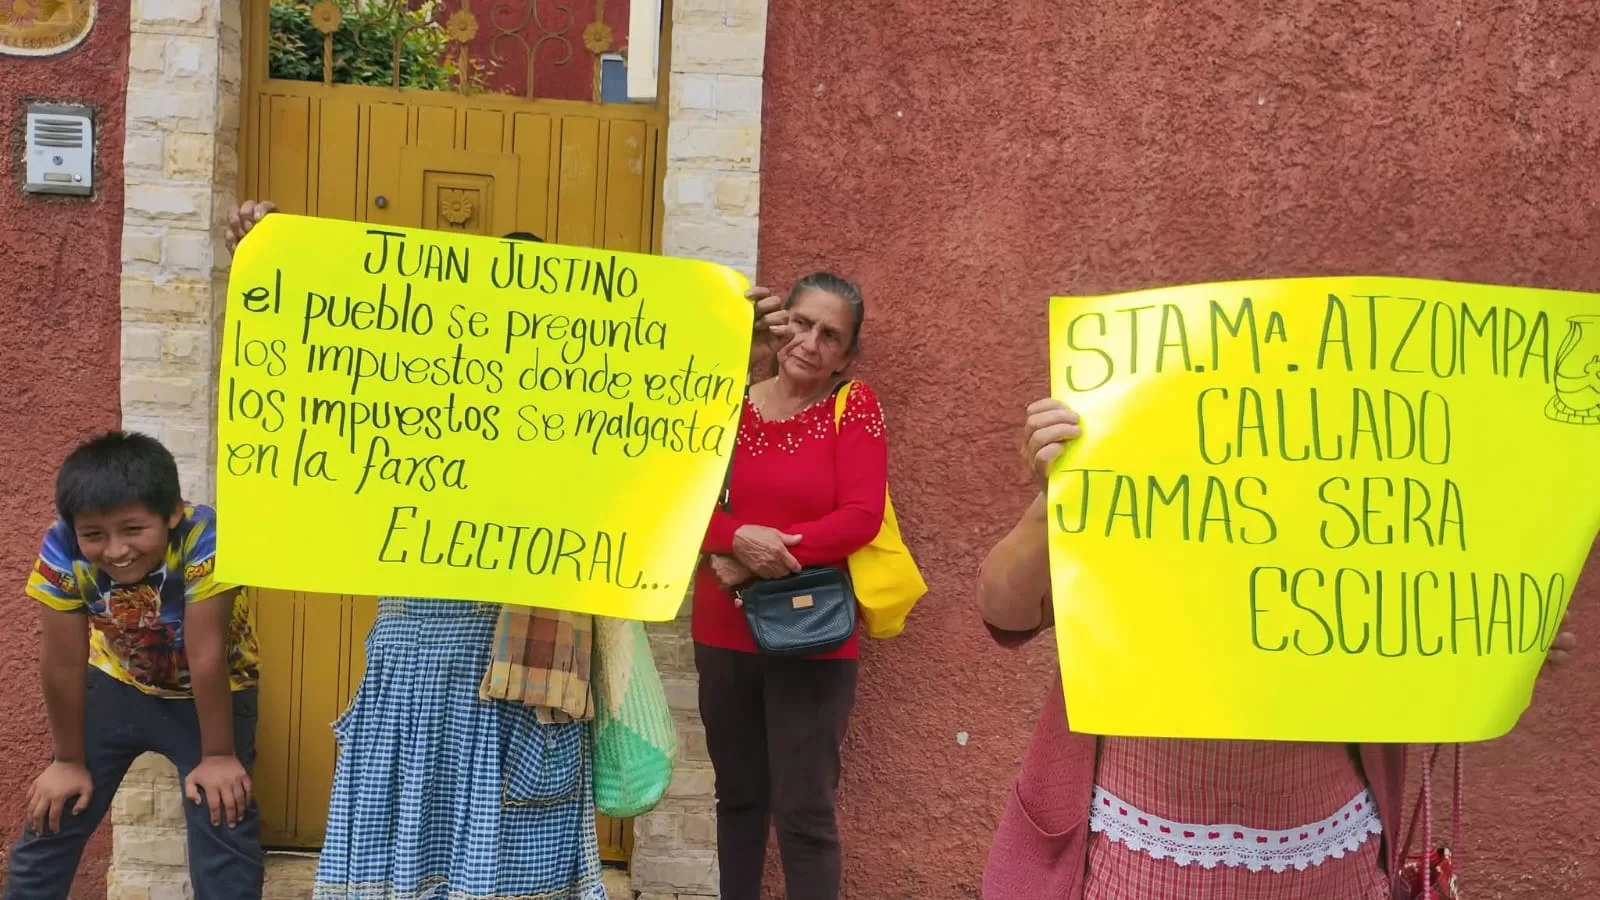 JUAN JUSTINO
el pueblo se pregunta
los impuestos donde están,
los impuestos se malgasta
en la farsa
ELECTORAL...
STA. Mª. ATZOMPA
CALLADO
JAMAS SERA
ESCUCHADO